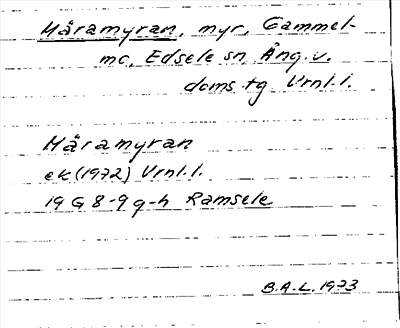 Märamyran, myr, Gammel-
mo, Edsele sn Ång. v.
doms. tg Vrnl. l.
Märamyran
ek (1972) Vrnl. l.
19 G 8-9 g-h Ramsele
B.A-L. 1973